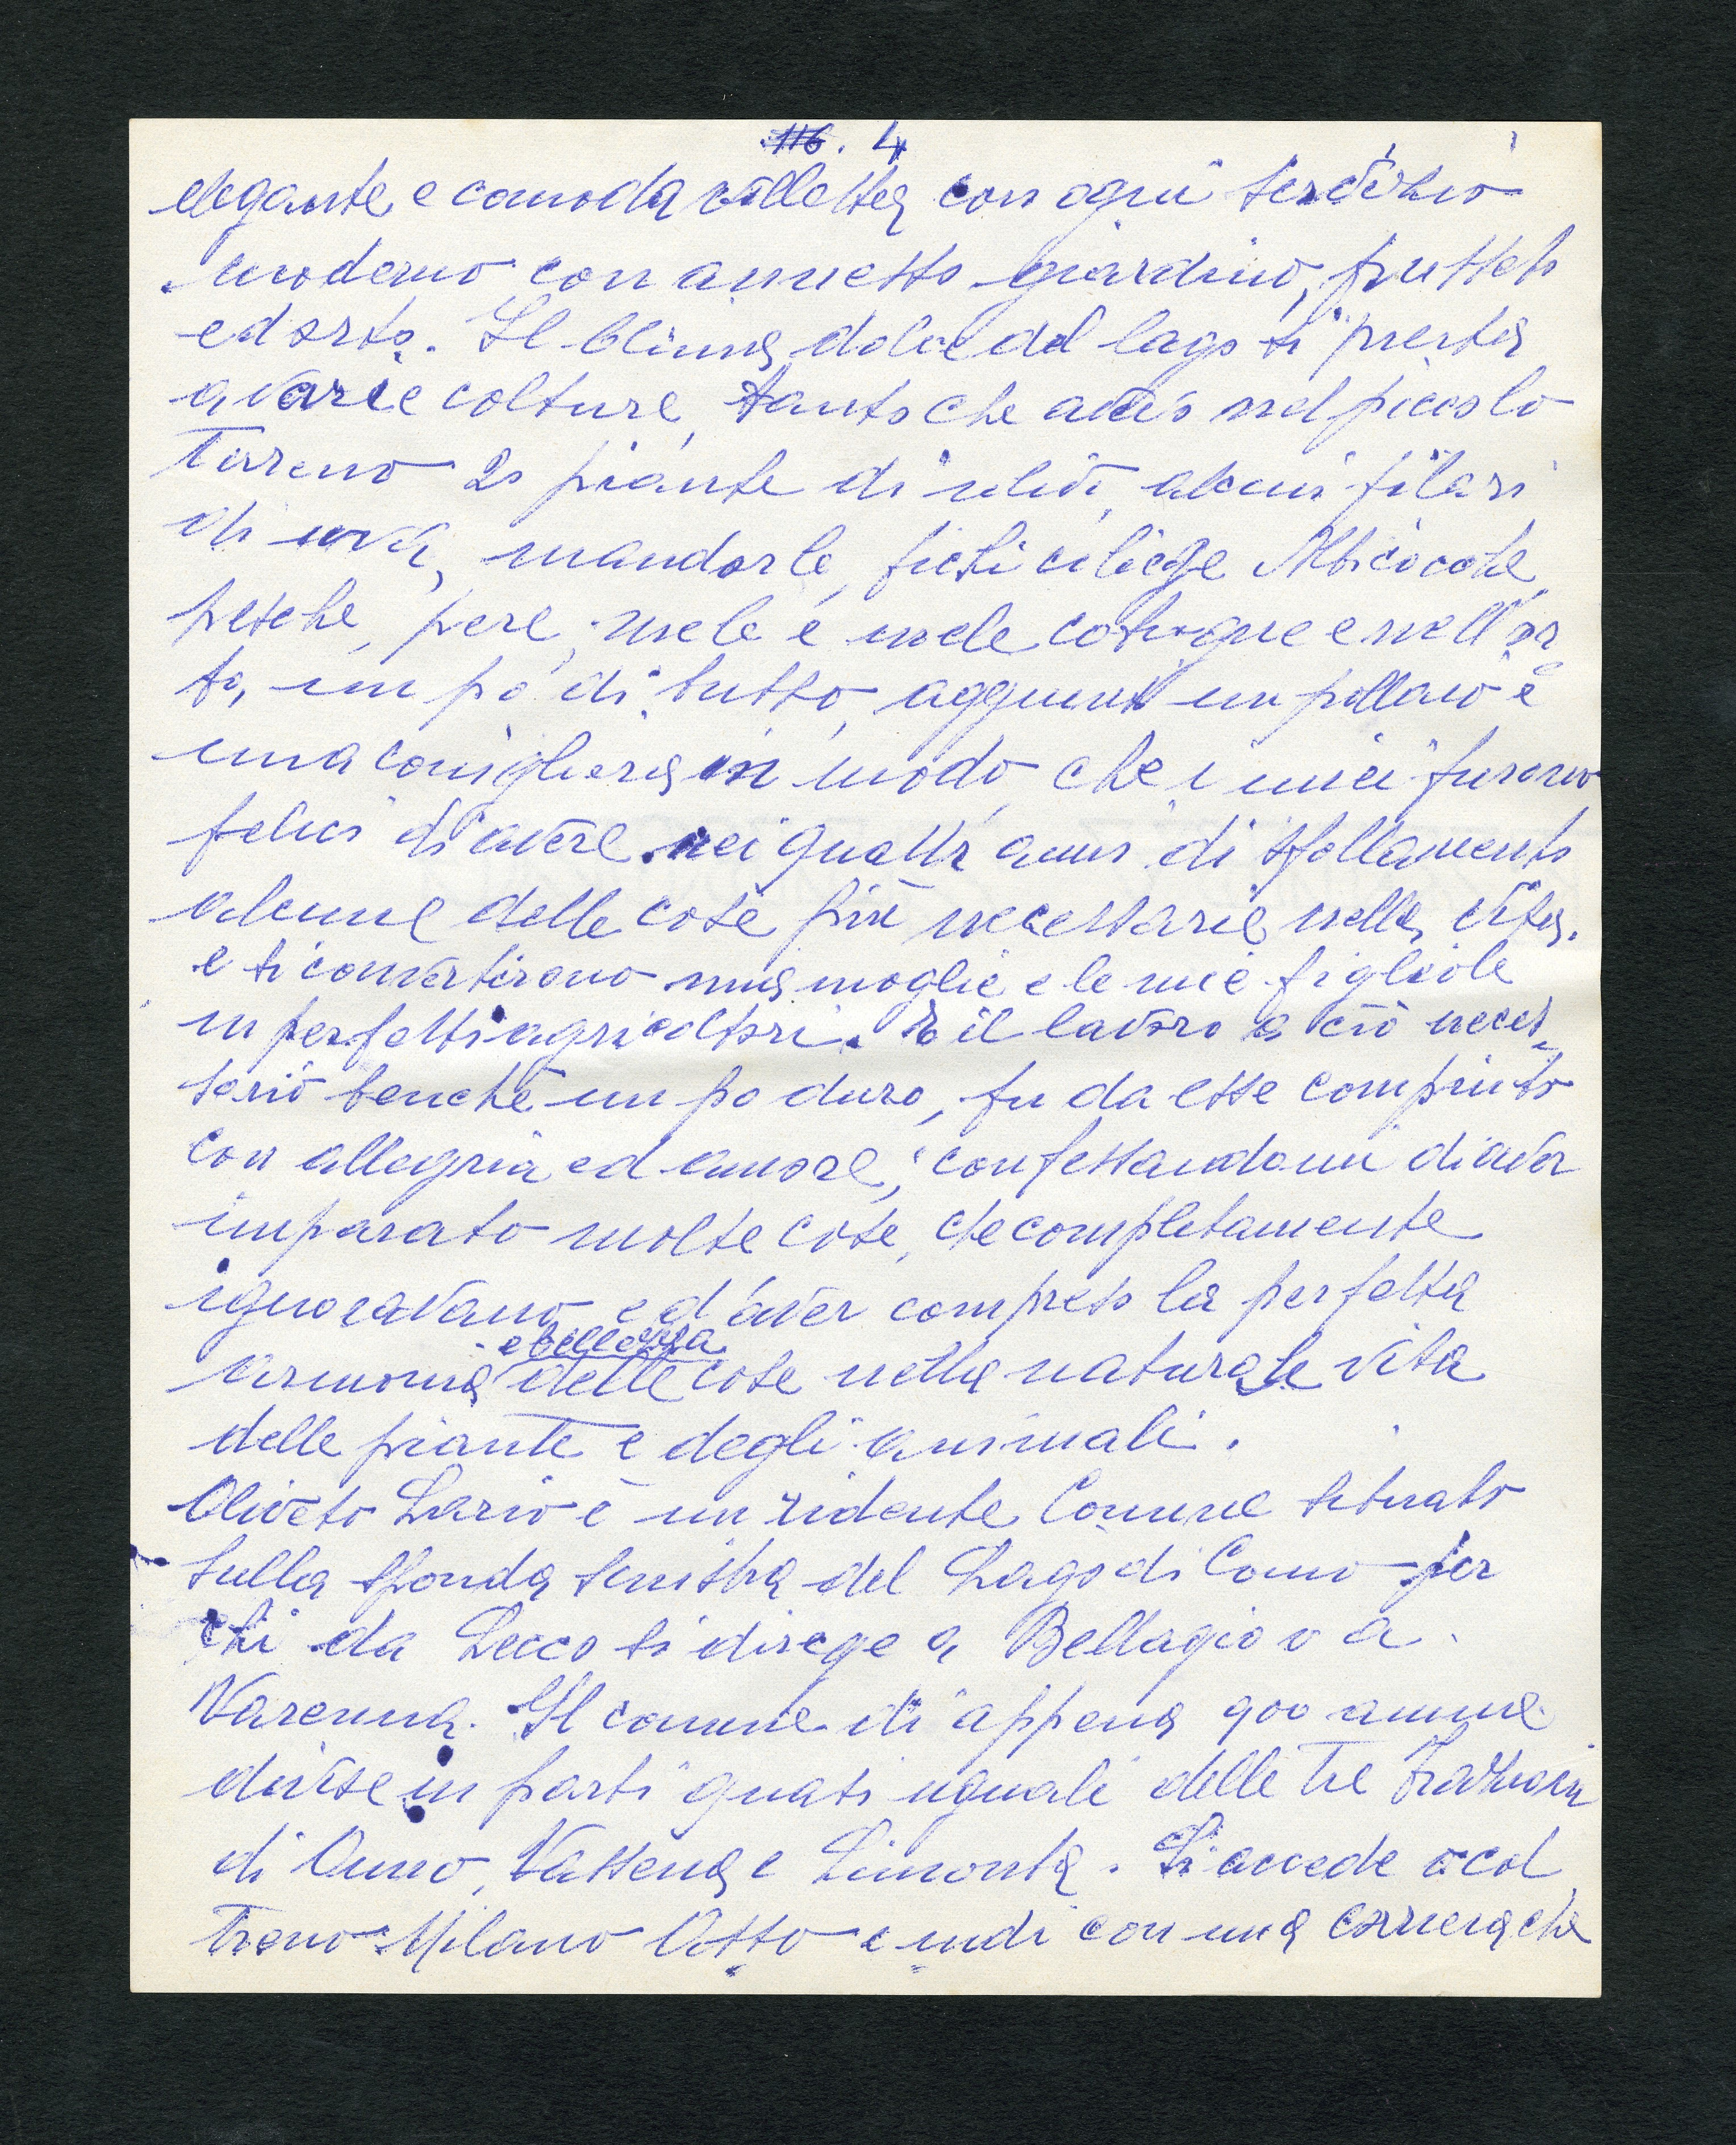 116. 4
elegante e comoda villetta con ogni servizio
moderno con annesso giardino, frutteto
ed orto. Il clima dolce del lago si presta
a varie colture, tanto che avevo nel piccolo
Terreno 20 piante di ulivi, alcuni filari
di uva, mandorle, fichi ciliege Albicocche,
pesche, pere, mele e mele cotogne e nell'or
to, un po' di tutto, aggiunsi un pollaio e
una conigliera in modo che i miei furono
felici di avere nei quattr'anni di sfollamento
alcune delle cose più necessarie nella vita.
e si convertirono mia moglie e le mie figliole
in perfetti agricoltori. E il lavoro a ciò neces-
sario benchè un po duro, fu da esse compiuto
con allegria ed amore, confessandomi di aver
imparato molte cose, che completamente
ignoravano ed aver compreso la perfetta
armonia e bellezza delle cose nella naturale vita
delle piante e degli animali.
Oliveto Lario è un ridente Comune situato
sulla sponda sinistra del Lago di Como per
chi da Lecco si dirige a Bellagio o a
Varenna. Il comune di appena 900 anime
divise in parti quasi uguali delle tre frazioni
di Onno, Vassena e Limonta. Si accede col
Treno Milano Asso e indi con una corriera che